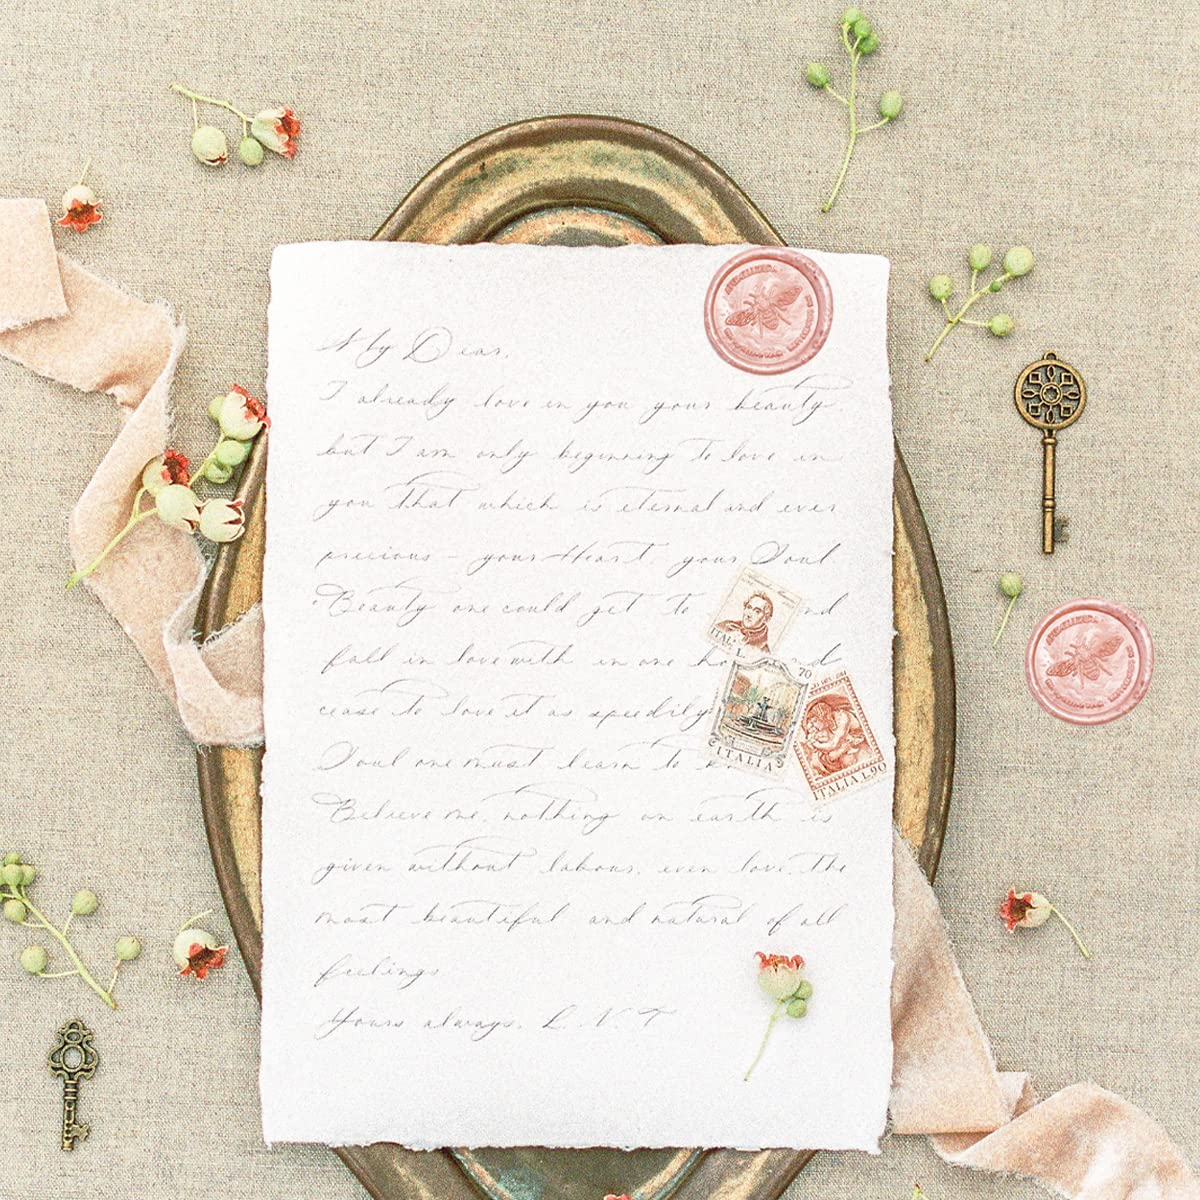 My Dear,
I already love in you your beauty,
but I am only beginning to love in
you that which is eternal and ever
precious – your Heart, your Soul.
Beauty one could get to nd
fall in love with in one ho nd
cease to love it as speedily
Soul one must learn to k
Believe me, nothing on earth is
given without labour, even love, the
most beautiful and natural of all
feelings
Yours always, L. N. T
ITAL L.
70
ITALIA
ITALIA L.90